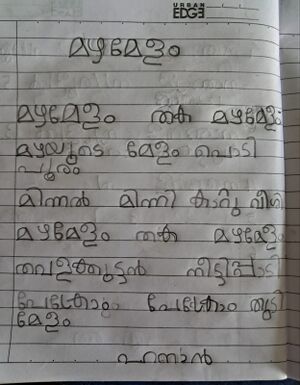 URBAN
EDGE
മഴമേളം
മഴമേളം തക മഴമേളം
മഴയുടെ മേളം പൊടി
പൂരം
മിന്നൽ മിന്നി കാറ്റു വീശി
മഴമേളം തക മഴമേളം
തവളക്കുട്ടൻ നീട്ടിപ്പാടി
പേക്രോം പേക്രോം തുടി
മേളം